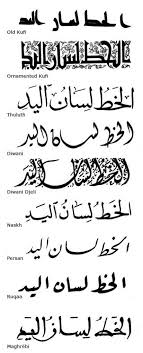 الخط لسان اليد
Old Kufi
الخط لسان اليد
Ornamented Kufi
الخط لسان اليد
Thuluth
الخط لسان اليد
Diwani
الخط لسان اليد
Diwani Djeli
الخط لسان اليد
Naskh
الخط لسان اليد
Persan
الخط لسان اليد
Ruqaa
الخط لسان اليد
Maghrebi